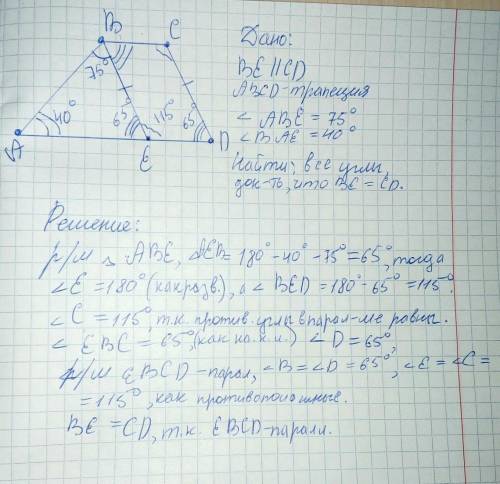 B
C
75°
40°
65°
115°
65°
A
E
D
Дано:
BE || CD
ABCD - трапеция
∠ ABE = 75°
∠ BAE = 40°
Найти: все углы,
док-ть, что BE = CD.
Решение:
р/м △ ABE, ∠AEB = 180° - 40° - 75° = 65°, тогда
∠E = 180° (как разв.), а ∠ BED = 180° - 65° = 115°.
∠ C = 115°, т.к. против. углы в парал-ме равны.
∠ EBC = 65°, (как на.к.и.) ∠ D = 65°,
р/м EBCD - парал, ∠B = ∠D = 65°, ∠E = ∠C =
= 115°, как противоположные.
BE = CD, т.к. EBCD - паралл.